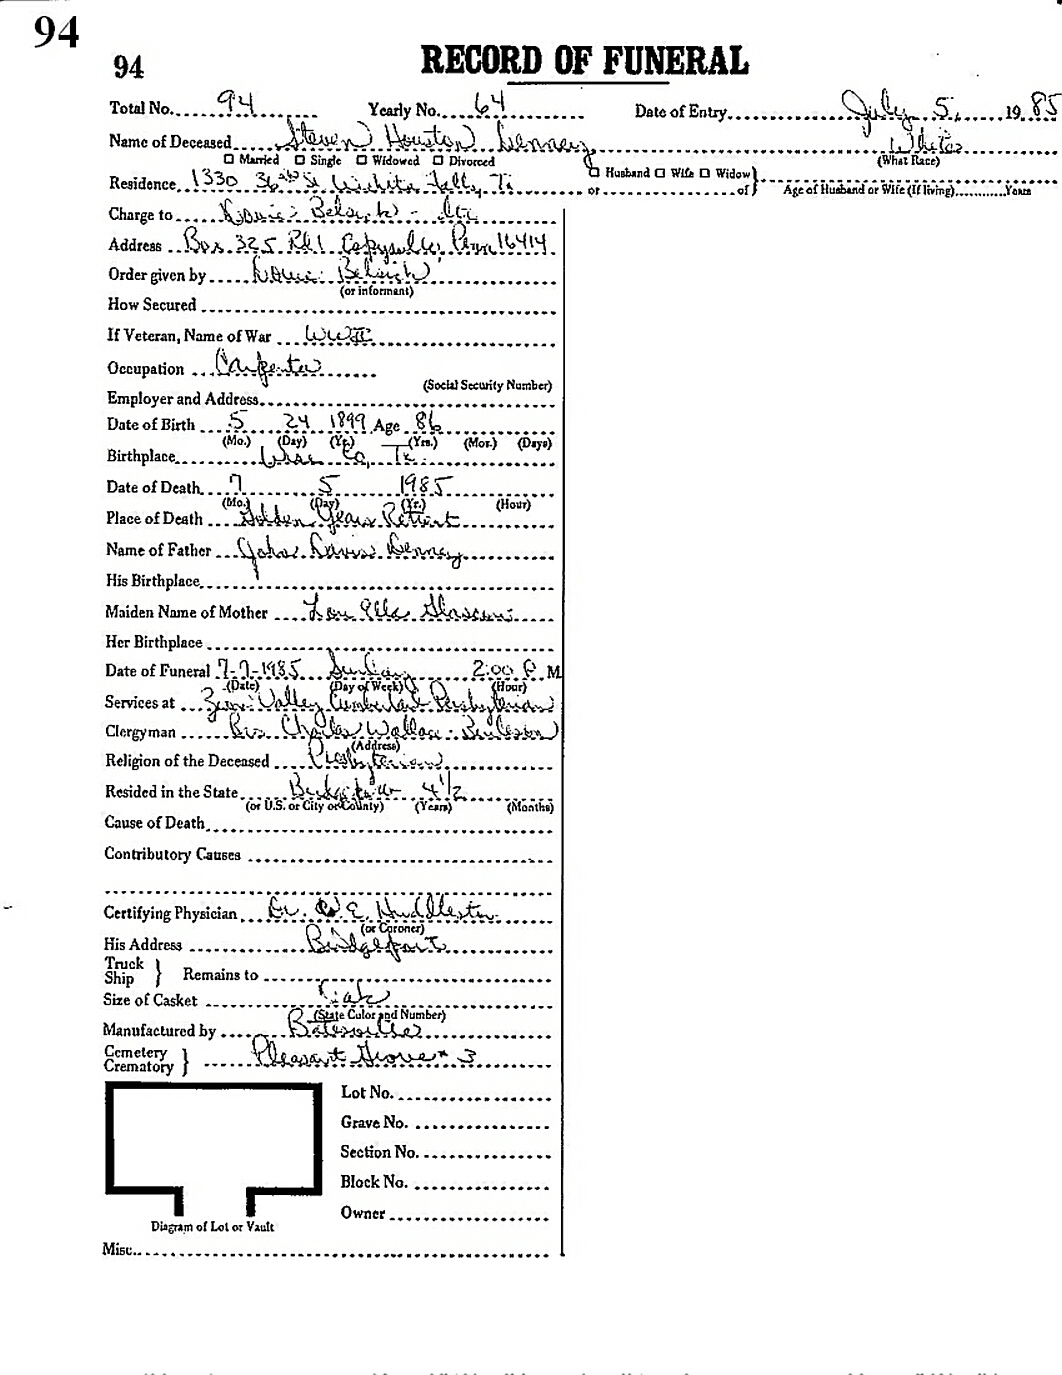 94
94 RECORD OF FUNERAL
Total No. 94 Yearly No. 64 Date of Entry July 5, 1985
Name of Deceased Steven Houston White
☐ Married ☐ Single ☐ Widowed ☐ Divorced (What Race)
☐ Husband ☐ Wife ☐ Widow
Residence 1330 36th St Wichita Falls, Tx or of Age of Husband or Wife (If living) Years
Charge to
Address Box 325 Rd 1 Penn 16414
Order given by
(or informant)
How Secured
If Veteran, Name of War WWII
Occupation Carpenter
(Social Security Number)
Employer and Address
Date of Birth 5 24 1899 Age 86
(Mo.) (Day) (Yr.) (Yrs.) (Mos.) (Days)
Birthplace Wise Co, Tx.
Date of Death 7 5 1985
(Mo.) (Day) (Yr.) (Hour)
Place of Death Golden Years Retreat
Name of Father John Davis
His Birthplace
Maiden Name of Mother Lou Ella
Her Birthplace
Date of Funeral 7-7-1985 Sunday 2:00 P M
(Date) (Day of Week) (Hour)
Services at Valley Cumberland Presbyterian
Clergyman Rev. Charles Wallace - Burleson
(Address)
Religion of the Deceased Presbyterian
Resided in the State Bridgeport 4 1/2
(or U.S. or City or County) (Years) (Months)
Cause of Death
Contributory Causes
Certifying Physician Dr. E. Huddleston
(or Coroner)
His Address Bridgeport
Truck
Ship } Remains to
Size of Casket Oak
(State Color and Number)
Manufactured by Batesville
Cemetery
Crematory } Pleasant Grove # 3
Lot No.
Grave No.
Section No.
Block No.
Owner
Diagram of Lot or Vault
Misc.